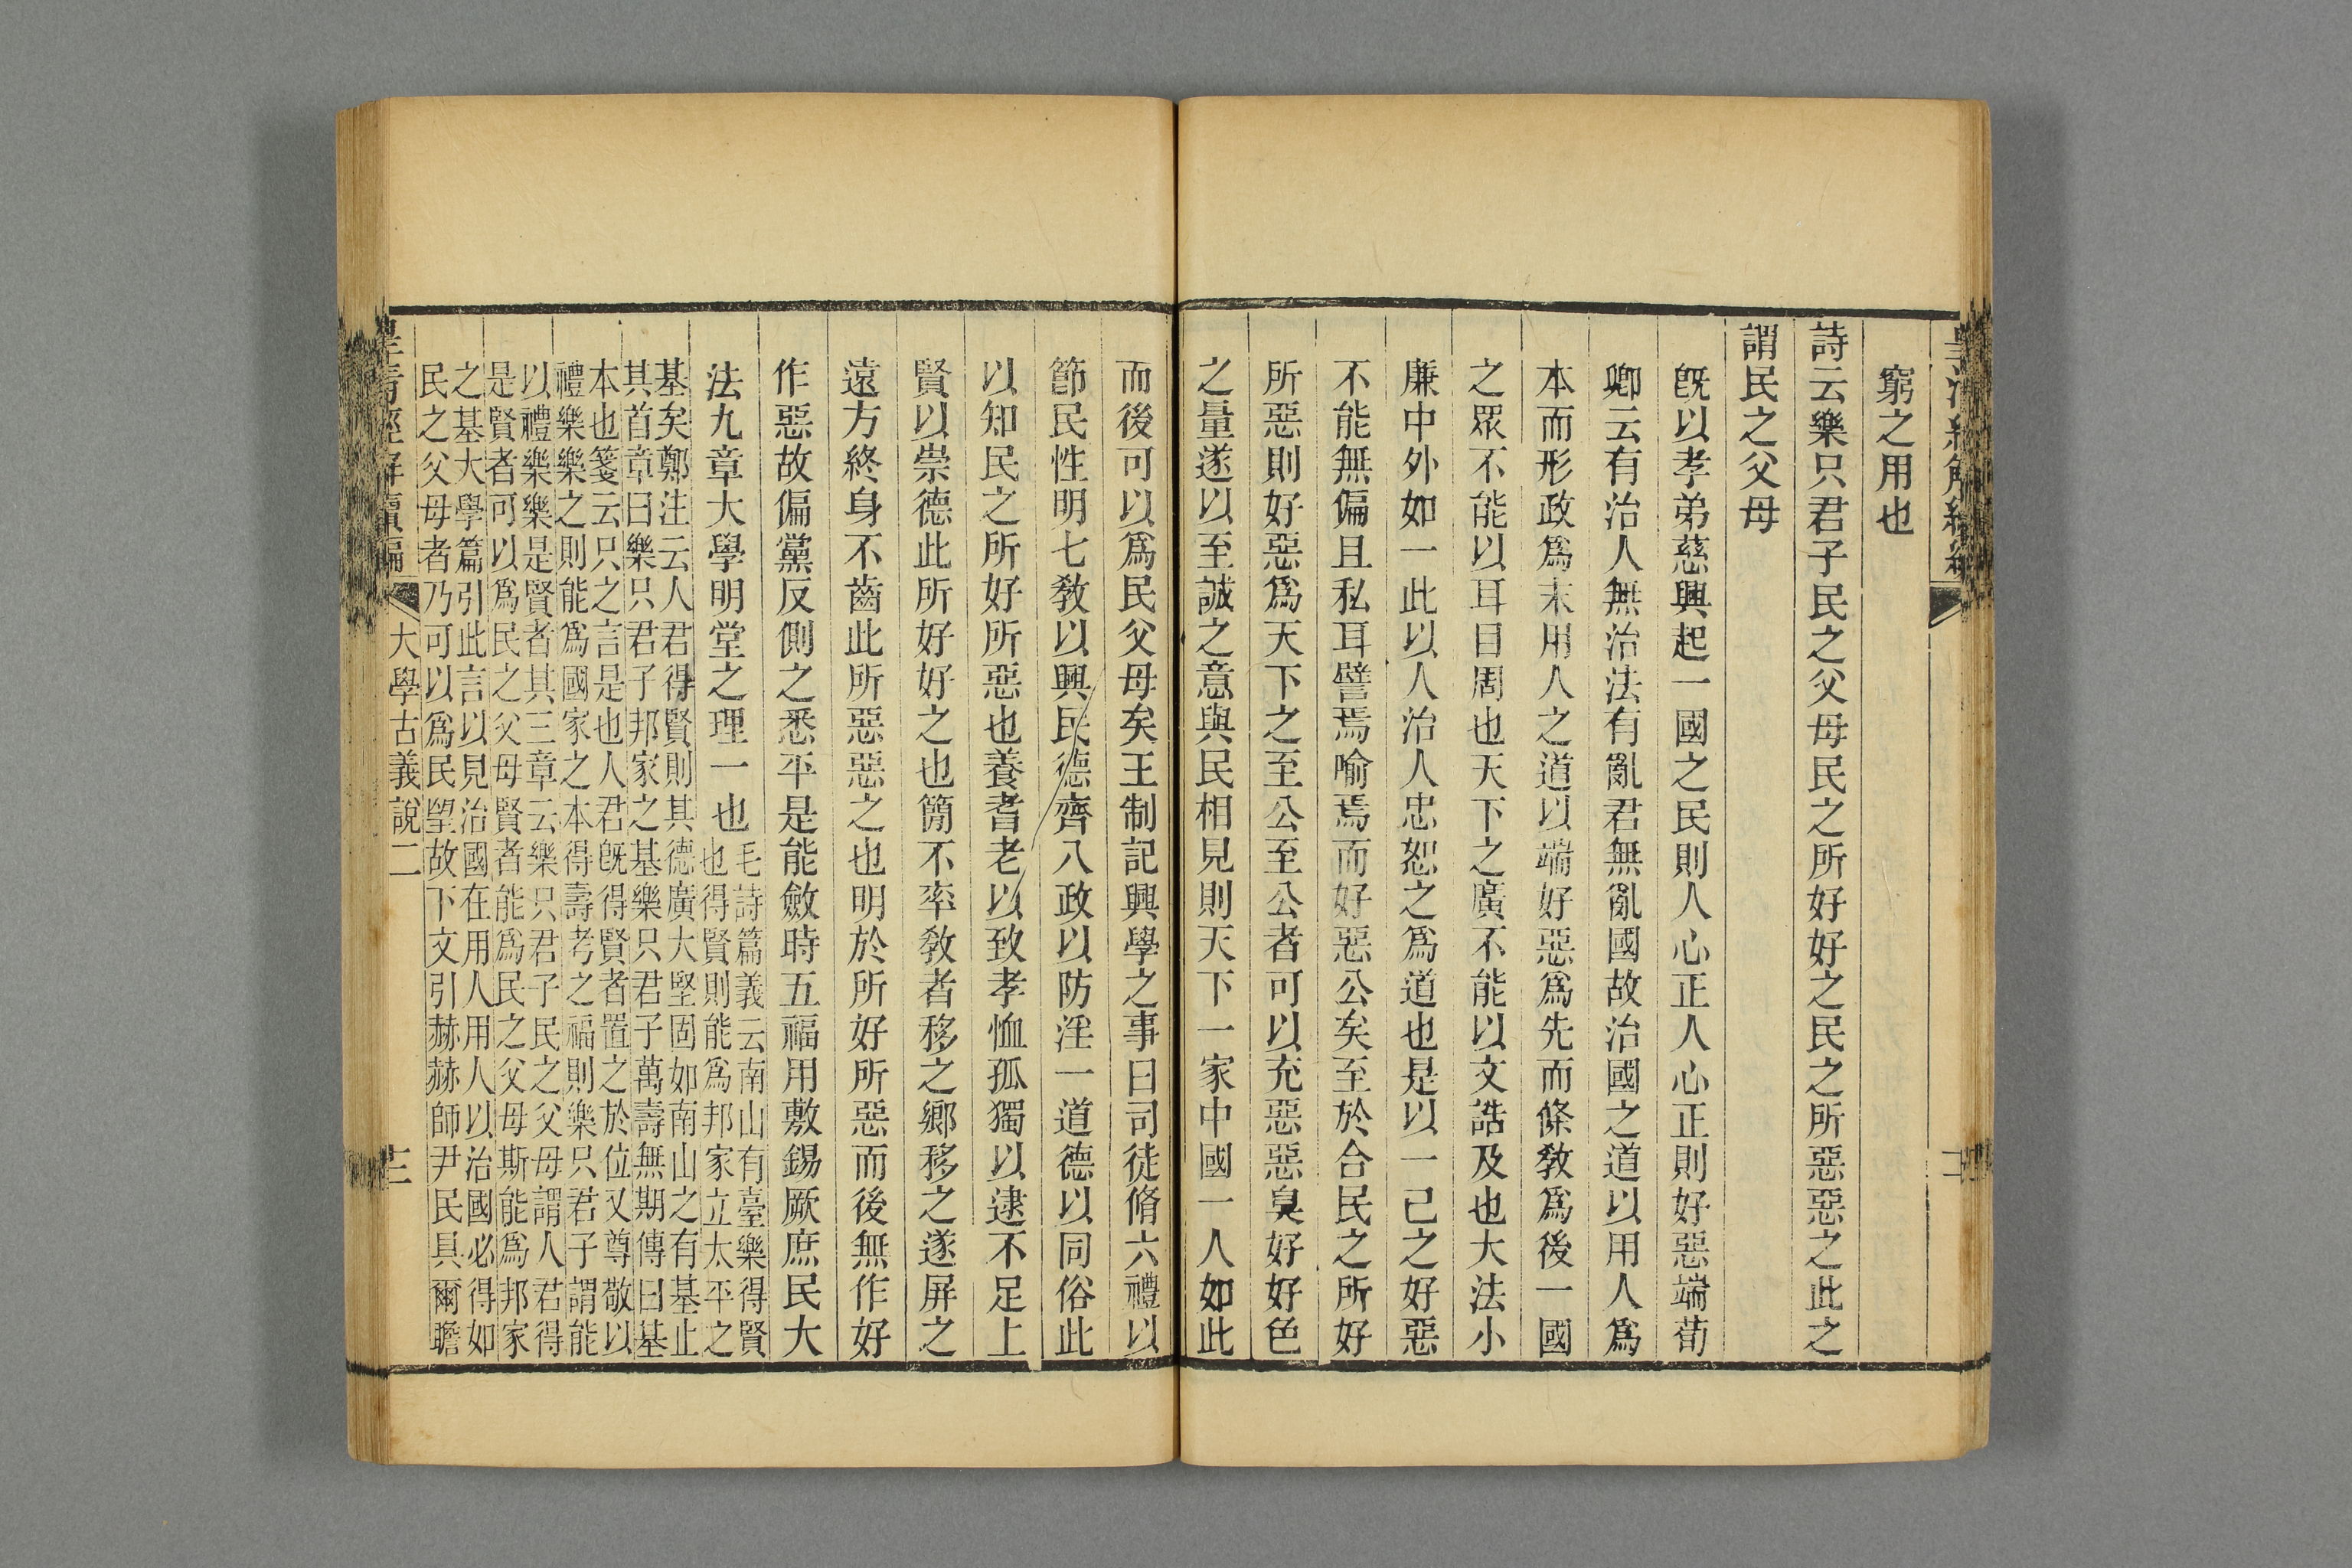 窮之用也
詩云樂只君子民之父母民之所好好之民之所惡惡之此之
謂民之父母
旣以孝弟慈興起一國之民則人心正人心正則好惡端荀
卿云有治人無治法有亂君無亂國故治國之道以用人爲
本而形政爲末用人之道以端好惡爲先而條敎爲後一國
之眾不能以耳目周也天下之廣不能以文誥及也大法小
廉中外如一此以人治人忠恕之爲道也是以一己之好惡
不能無偏且私耳譬焉喻焉而好惡公矣至於合民之所好
所惡則好惡爲天下之至公至公者可以充惡惡臭好好色
之量遂以至誠之意與民相見則天下一家中國一人如此
而後可以爲民父母矣王制記興學之事曰司徒脩六禮以
節民性明七敎以興民德齊八政以防淫一道德以同俗此
以知民之所好所惡也養耆老以致孝恤孤獨以逮不足上
賢以崇德此所好好之也簡不率敎者移之鄉移之遂屏之
遠方終身不齒此所惡惡之也明於所好所惡而後無作好
作惡故偏黨反側之悉平是能斂時五福用敷錫厥庶民大
法九章大學明堂之理一也
毛詩篇義云南山有臺樂得賢
也得賢則能爲邦家立太平之
基矣鄭注云人君得賢則其德廣大堅固如南山之有基止
其首章曰樂只君子邦家之基樂只君子萬壽無期傳曰基
本也箋云只之言是也人君旣得賢者置之於位又尊敬以
禮樂樂之則能爲國家之本得壽考之福則樂只君子謂能
以禮樂樂是賢者其三章云樂只君子民之父母謂人君得
是賢者可以爲民之父母賢者能爲民之父母斯能爲邦家
之基大學篇引此言以見治國在用人用人以治國必得如
民之父母者乃可以爲民望故下文引赫赫師尹民具爾瞻
皇淸經解續編
大學古義說二